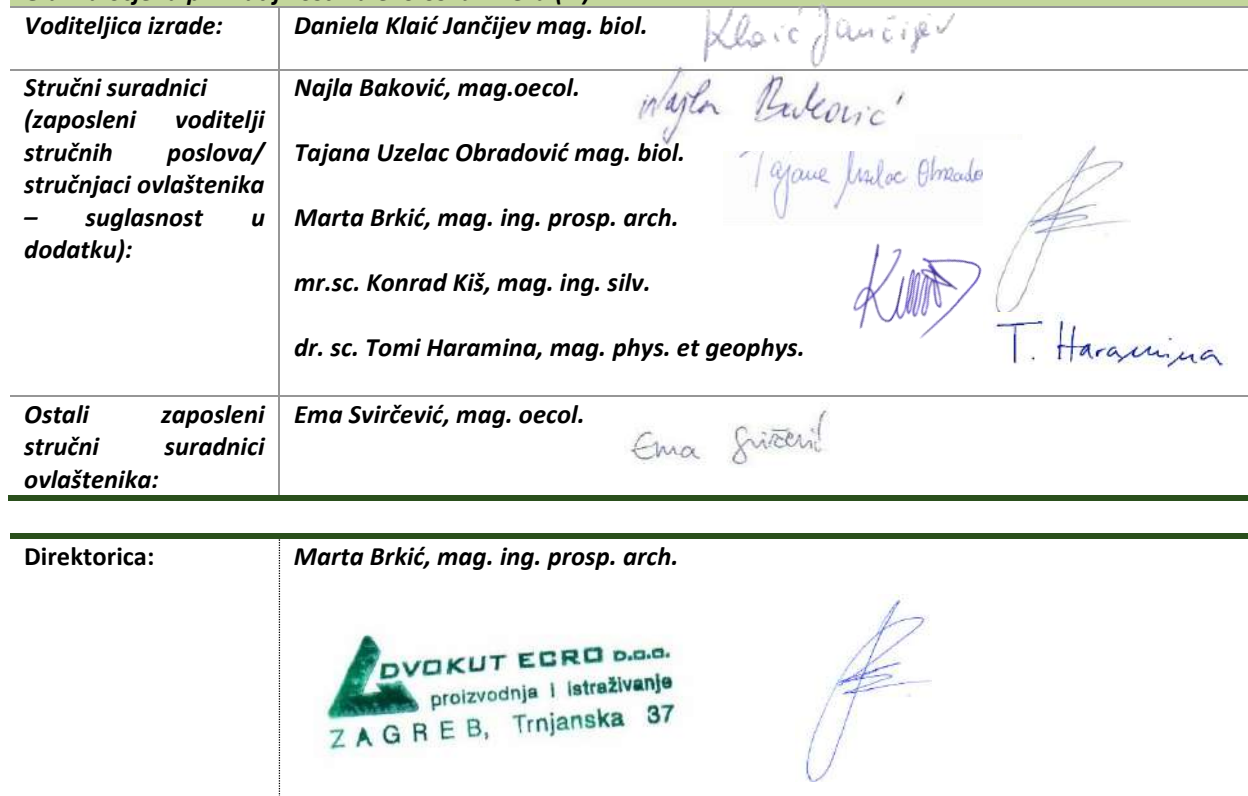 Voditeljica izrade:
Daniela Klaić Jančijev mag. biol.
Klaić Jančijev
Stručni suradnici
(zaposleni voditelji
stručnih poslova/
stručnjaci ovlaštenika
– suglasnost u
dodatku):
Najla Baković, mag.oecol.
Najla Baković
Tajana Uzelac Obradović mag. biol.
Tajana Uzelac Obrado
Marta Brkić, mag. ing. prosp. arch.
mr.sc. Konrad Kiš, mag. ing. silv.
dr. sc. Tomi Haramina, mag. phys. et geophys.
T. Haramina
Ostali zaposleni
stručni suradnici
ovlaštenika:
Ema Svirčević, mag. oecol.
Ema Svirčević
Direktorica:
Marta Brkić, mag. ing. prosp. arch.
DVOKUT ECRO D.O.O.
proizvodnja i istraživanje
ZAGREB, Trnjanska 37